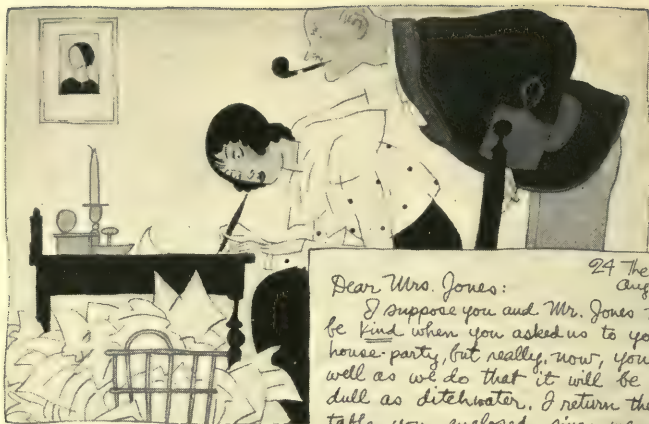 24 The
Aug
Dear Mrs. Jones:
I suppose you and Mr. Jones
be kind when you asked us to yo
house-party, but really, now, you
well as we do that it will be
dull as ditchwater. I return the
table you enclosed, since we